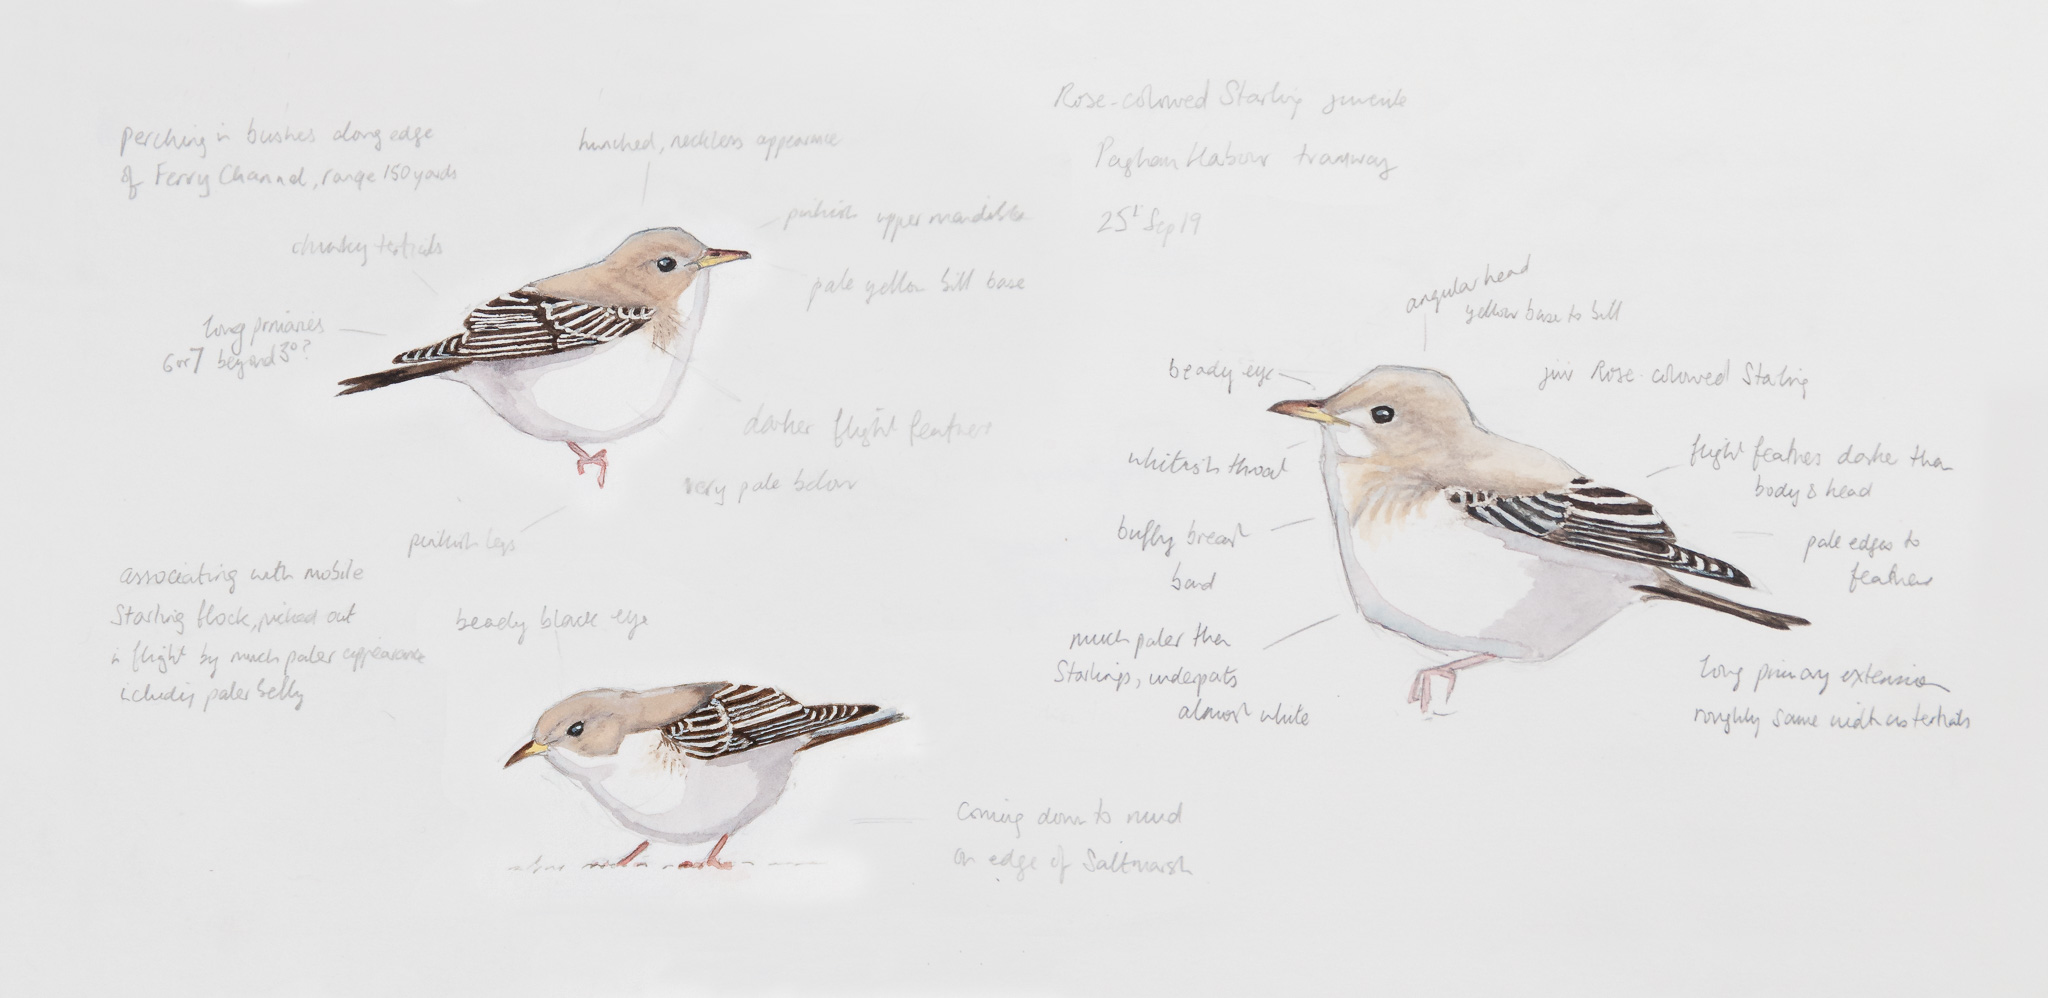 Rose-coloured Starling juvenile
Pagham Harbour tramway
25 Sep 19
perching in bushes along edge
of Ferry Channel, range 150 yards
hunched, neckless appearance
pinkish upper mandible
pale yellow bill base
chunky tertials
long primaries
6 or 7 beyond 3°?
darker flight feathers
very pale below
pinkish legs
associating with mobile
Starling flock, picked out
in flight by much paler appearance
including paler belly
beady black eye
coming down to mud
on edge of Saltmarsh
angular head
yellow base to bill
beady eye
juv Rose-coloured Starling
whitish throat
flight feathers darker than
body & head
buffy breast
band
pale edges to
feathers
much paler than
Starlings, underparts
almost white
long primary extension
roughly same width as tertials